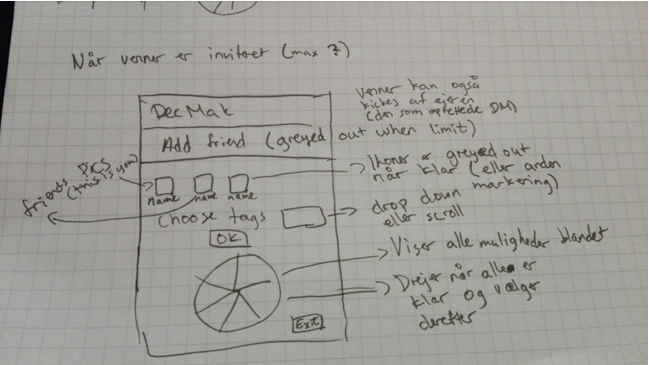 Når venner er inviteret (max ?)
venner kan også
kickes af ejeren
(den som oprettede DM)
DecMak
Add friend (greyed out when limit)
Pics
(this is you)
friends
name name name
Ikoner er greyed out
når klar (eller anden
markering)
Choose tags
drop down
eller scroll
OK
Viser alle muligheder blandet
Drejer når alle er
klar og vælger
derefter
Exit